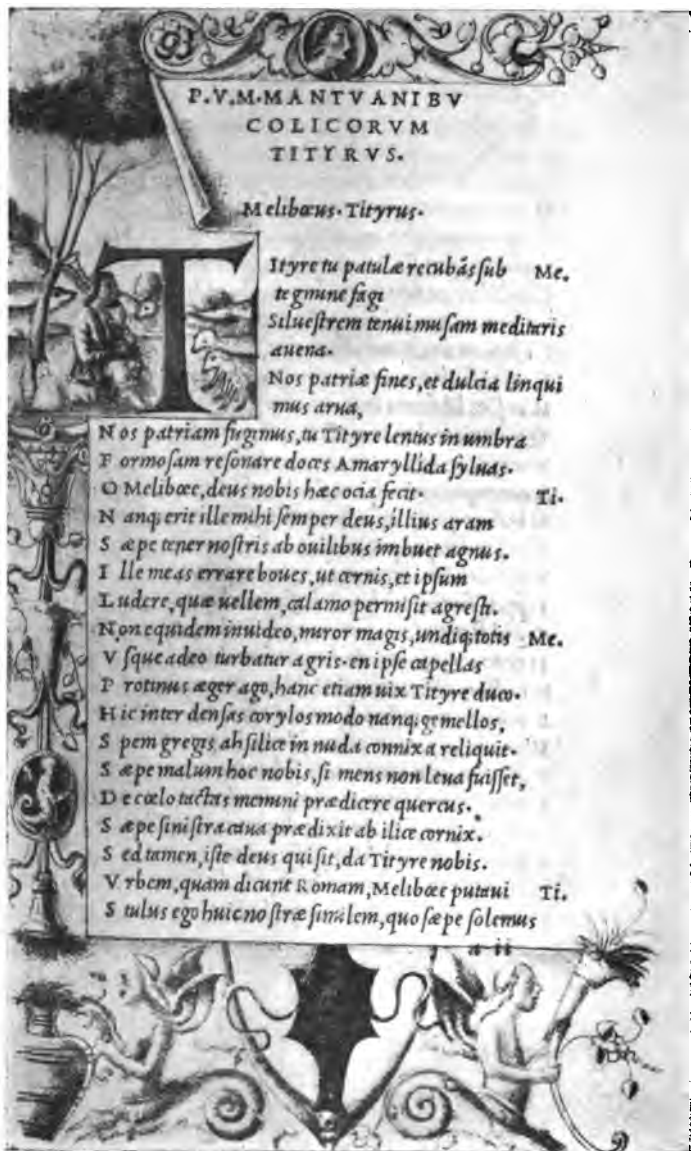 P.V.M.MANTVANI BV
COLICORVM
TITYRVS.
Melibœus. Tityrus.
TItyre tu patulæ recubãs sub Me.
tegmine fagi
Siluestrem tenui musam meditaris
auena.
Nos patriæ fines, et dulcia linqui
mus arua,
N os patriam fugimus, tu Tityre lentus in umbra
F ormosam resonare doces Amaryllida syluas.
O Melibœe, deus nobis hæc ocia fecit. Ti.
N anq; erit ille mihi semper deus, illius aram
S æpe tener nostris ab ouilibus imbuet agnus.
I lle meas errare boues, ut cernis, et ipsum
L udere, quæ uellem, calamo permisit agresti.
N on equidem inuideo, miror magis, undiq; totis Me.
V sque adeo turbatur agris. en ipse capellas
P rotinus æger ago, hanc etiam uix Tityre duco.
H ic inter densas corylos modo nanq; gemellos,
S pem gregis, ah silice in nuda connixa reliquit.
S æpe malum hoc nobis, si mens non leua fuisset,
D e cœlo tactas memini prædicere quercus.
S æpe sinistra caua prædixit ab ilice cornix.
S ed tamen, iste deus qui sit, da Tityre nobis.
V rbem, quam dicunt Romam, Melibœe putaui Ti.
S tultus ego huic nostræ similem, quo sæpe solemus
a ii